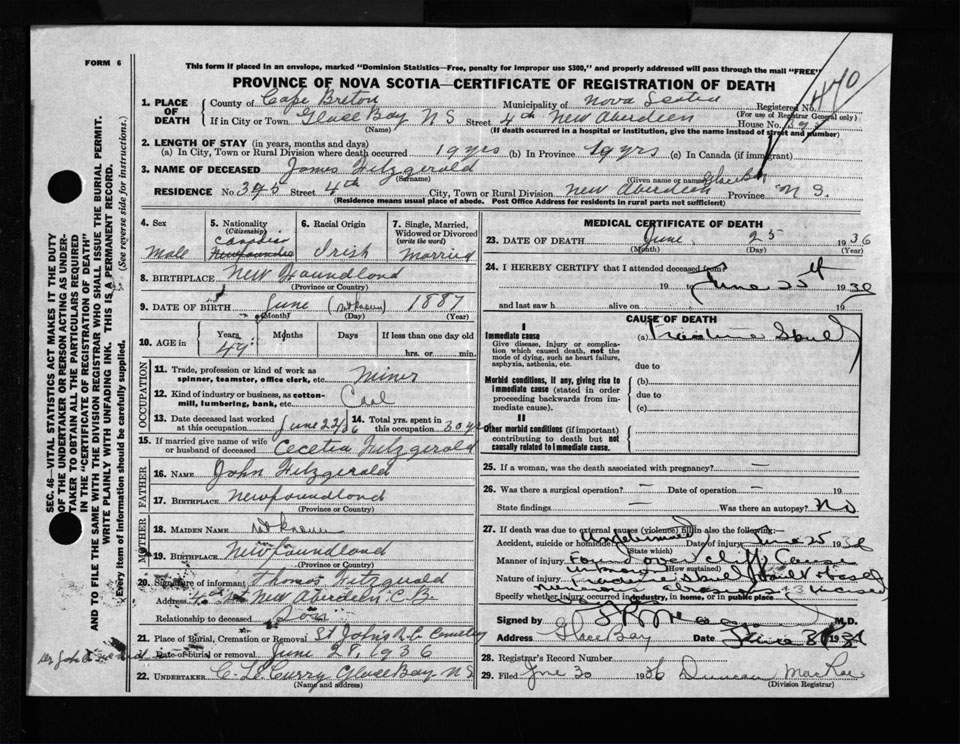 FORM 6
This form if placed in an envelope, marked "Dominion Statistics—Free, penalty for improper use $300," and properly addressed will pass through the mail "FREE"
PROVINCE OF NOVA SCOTIA—CERTIFICATE OF REGISTRATION OF DEATH
470
1. PLACE OF DEATH County of Cape Breton Municipality of Nova Scotia Registered No.
(For use of Registrar General only)
If in City or Town Glace Bay N S Street 4th New Aberdeen House No. 395
(Name) (If death occurred in a hospital or institution, give the name instead of street and number)
2. LENGTH OF STAY (in years, months and days)
(a) In City, Town or Rural Division where death occurred 19 yrs (b) In Province 19 yrs (c) In Canada (if immigrant)
3. NAME OF DECEASED James Fitzgerald
(Surname) (Given name or names)
RESIDENCE No. 395 Street 4th City, Town or Rural Division New Aberdeen Glace Bay Province N S.
(Residence means usual place of abode. Post Office Address for residents in rural parts not sufficient)
4. Sex Male
5. Nationality (Citizenship) Canadian
6. Racial Origin Irish
7. Single, Married, Widowed or Divorced (write the word) Married
8. BIRTHPLACE New Foundland
(Province or Country)
9. DATE OF BIRTH June (Not known) 1887
(Month) (Day) (Year)
10. AGE in Years 49 Months Days If less than one day old
hrs. or min.
OCCUPATION
11. Trade, profession or kind of work as spinner, teamster, office clerk, etc. Miner
12. Kind of industry or business, as cotton-mill, lumbering, bank, etc. Coal
13. Date deceased last worked at this occupation June 22/36 14. Total yrs. spent in this occupation 30 yrs
15. If married give name of wife or husband of deceased Cecelia Fitzgerald
FATHER
16. NAME John Fitzgerald
17. BIRTHPLACE Newfoundland
(Province or Country)
MOTHER
18. MAIDEN NAME Not known
19. BIRTHPLACE Newfoundland
(Province or Country)
20. Signature of informant Thomas Fitzgerald
Address 4th St New Aberdeen C.B.
Relationship to deceased Son
21. Place of Burial, Cremation or Removal St John's R.C. Cemetery
Date of burial or removal June 28, 1936
22. UNDERTAKER C. L. Curry Glace Bay N S
(Name and Address)
MEDICAL CERTIFICATE OF DEATH
23. DATE OF DEATH June 25 1936
(Month) (Day) (Year)
24. I HEREBY CERTIFY that I attended deceased from
19 to June 25th 1936
and last saw h alive on 19
CAUSE OF DEATH
I
Immediate cause (a) Fracture Skull
Give disease, injury or complication which caused death, not the mode of dying, such as heart failure, asphyxia, asthenia, etc.
due to
Morbid conditions, if any, giving rise to immediate cause (stated in order proceeding backwards from immediate cause).
(b)
due to
(c)
II
Other morbid conditions (if important) contributing to death but not causally related to immediate cause.
25. If a woman, was the death associated with pregnancy? —
26. Was there a surgical operation? — Date of operation — 19
State findings — Was there an autopsy? No
27. If death was due to external causes (violence) fill in also the following:—
Accident, suicide or homicide? Undetermined Date of injury June 25 1936
(State which)
Manner of injury Found over cliff
(How sustained)
Nature of injury Fracture Skull
Specify whether injury occurred in industry, in home, or in public place
Signed by M.D.
Address Glace Bay Date June 1936
28. Registrar's Record Number
29. Filed June 30 1936 Duncan MacRae
(Division Registrar)
SEC. 46—VITAL STATISTICS ACT MAKES IT THE DUTY
OF THE UNDERTAKER OR PERSON ACTING AS UNDER-
TAKER TO OBTAIN ALL THE PARTICULARS REQUIRED
IN THE "CERTIFICATE OF REGISTRATION OF DEATH"
AND TO FILE THE SAME WITH THE DIVISION REGISTRAR WHO SHALL ISSUE THE BURIAL PERMIT.
WRITE PLAINLY WITH UNFADING INK. THIS IS A PERMANENT RECORD.
Every item of information should be carefully supplied. (See reverse side for instructions.)